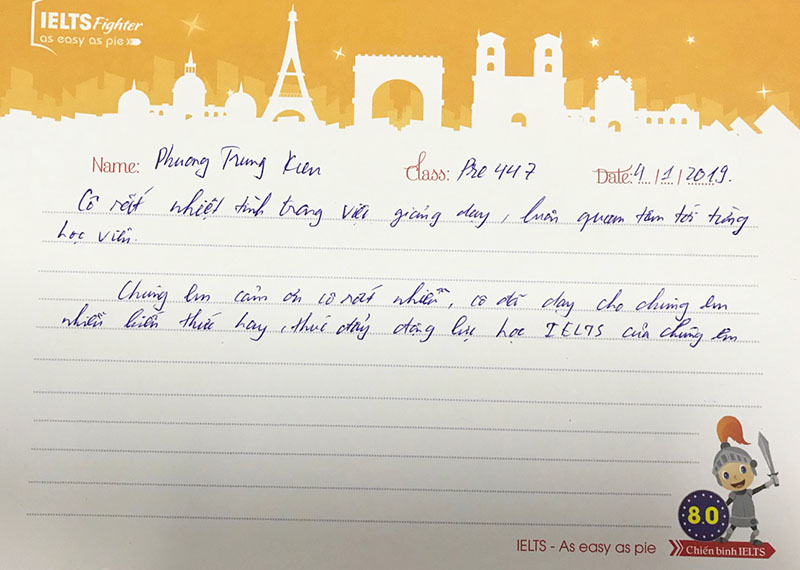 IELTS Fighter
as easy as pie
Name: Phuong Trung Kien Class: Pre 447 Date: 4/1/2019.
Cô rất nhiệt tình trong việc giảng dạy, luôn quan tâm tới từng
học viên.
Chúng em cảm ơn cô rất nhiều, cô đã dạy cho chúng em
nhiều kiến thức hay, thúc đẩy động lực học IELTS của chúng em
8.0
IELTS - As easy as pie
Chiến binh IELTS